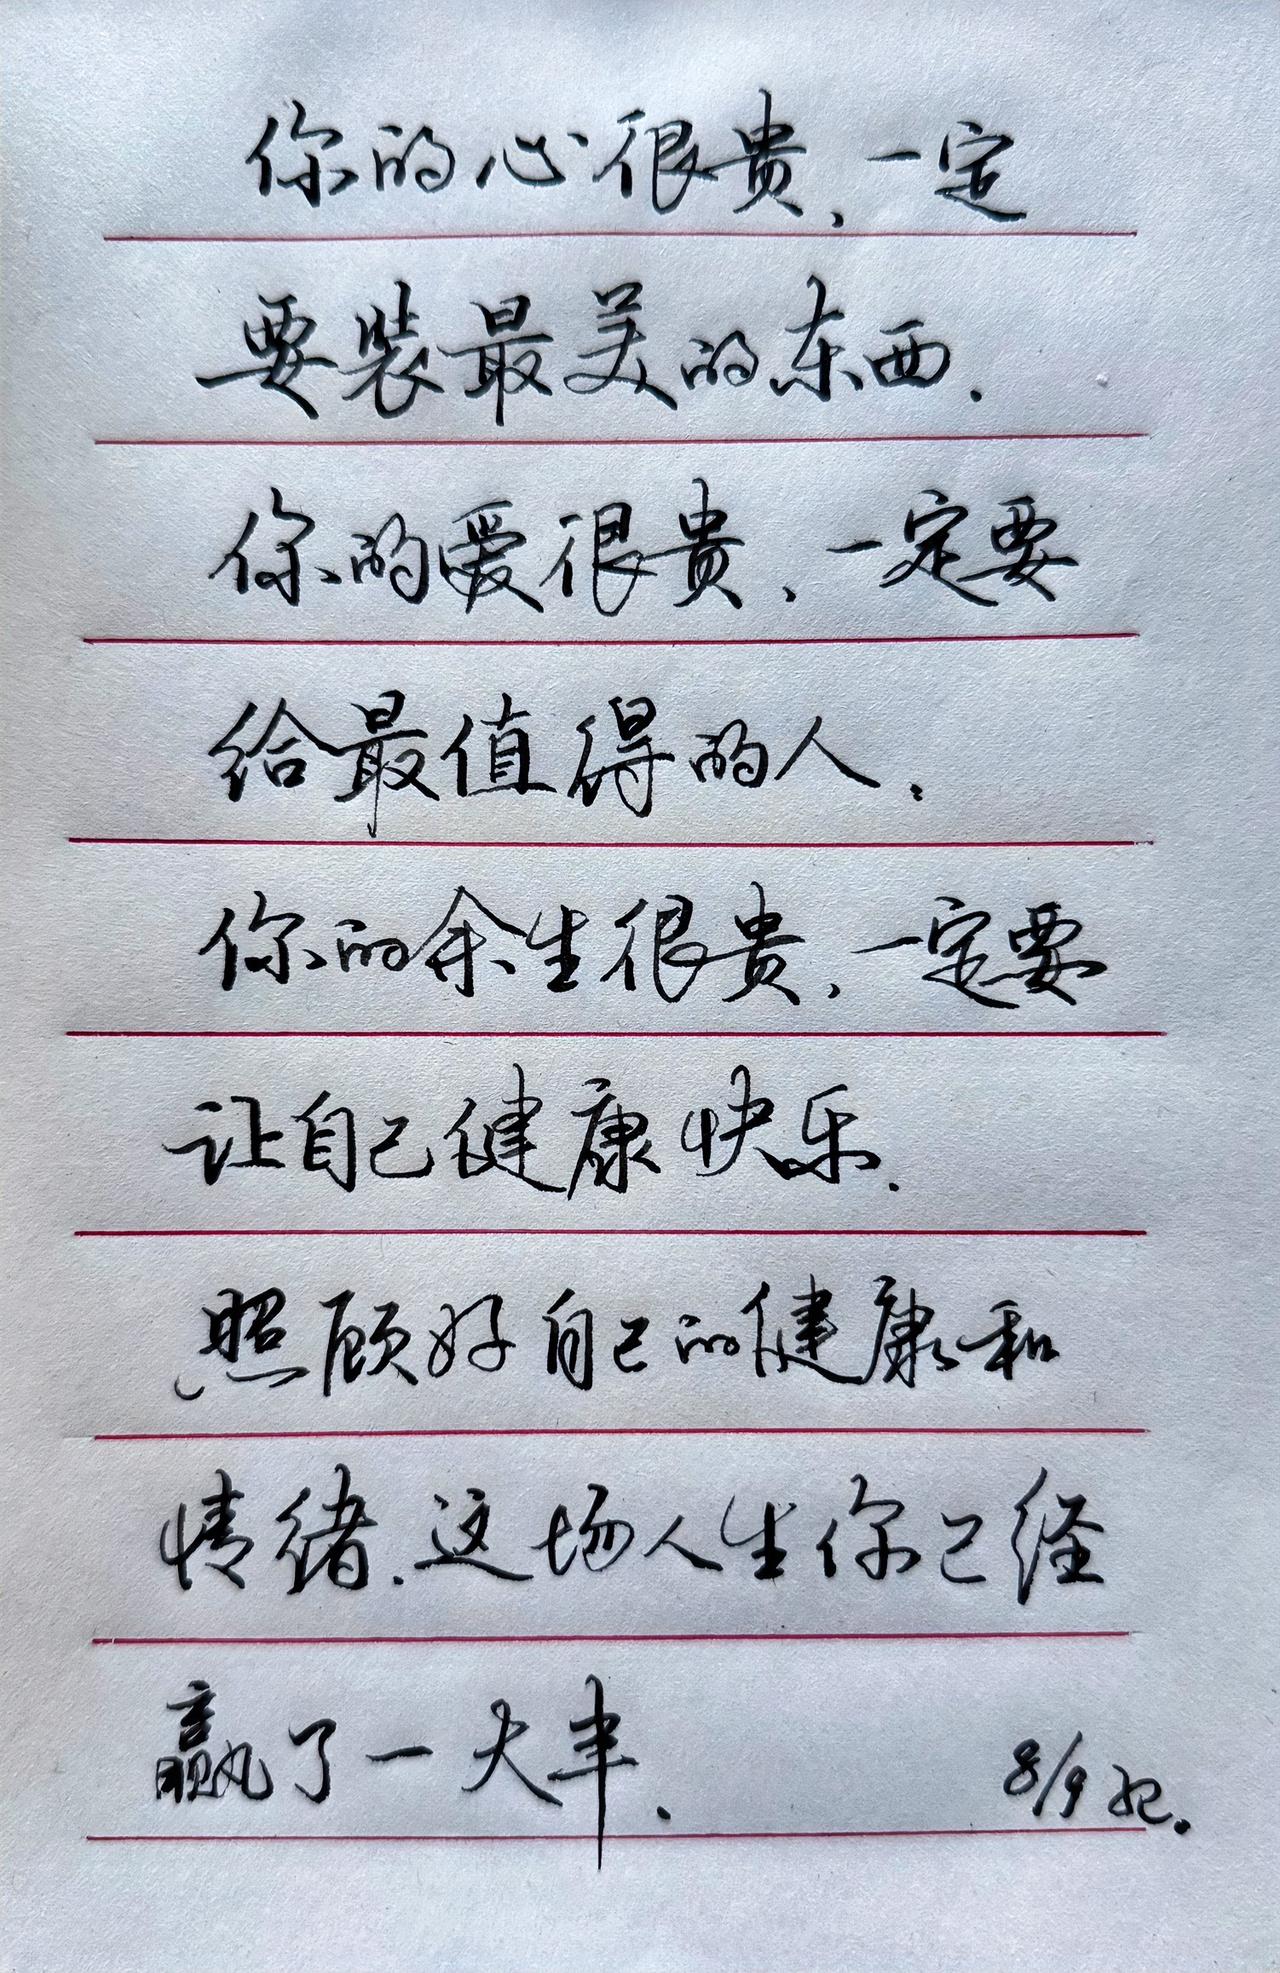 你的心很贵，一定
要装最美的东西．
你的爱很贵，一定要
给最值得的人．
你的余生很贵，一定要
让自己健康快乐．
照顾好自己的健康和
情绪．这场人生你已经
赢了一大半．
8/9